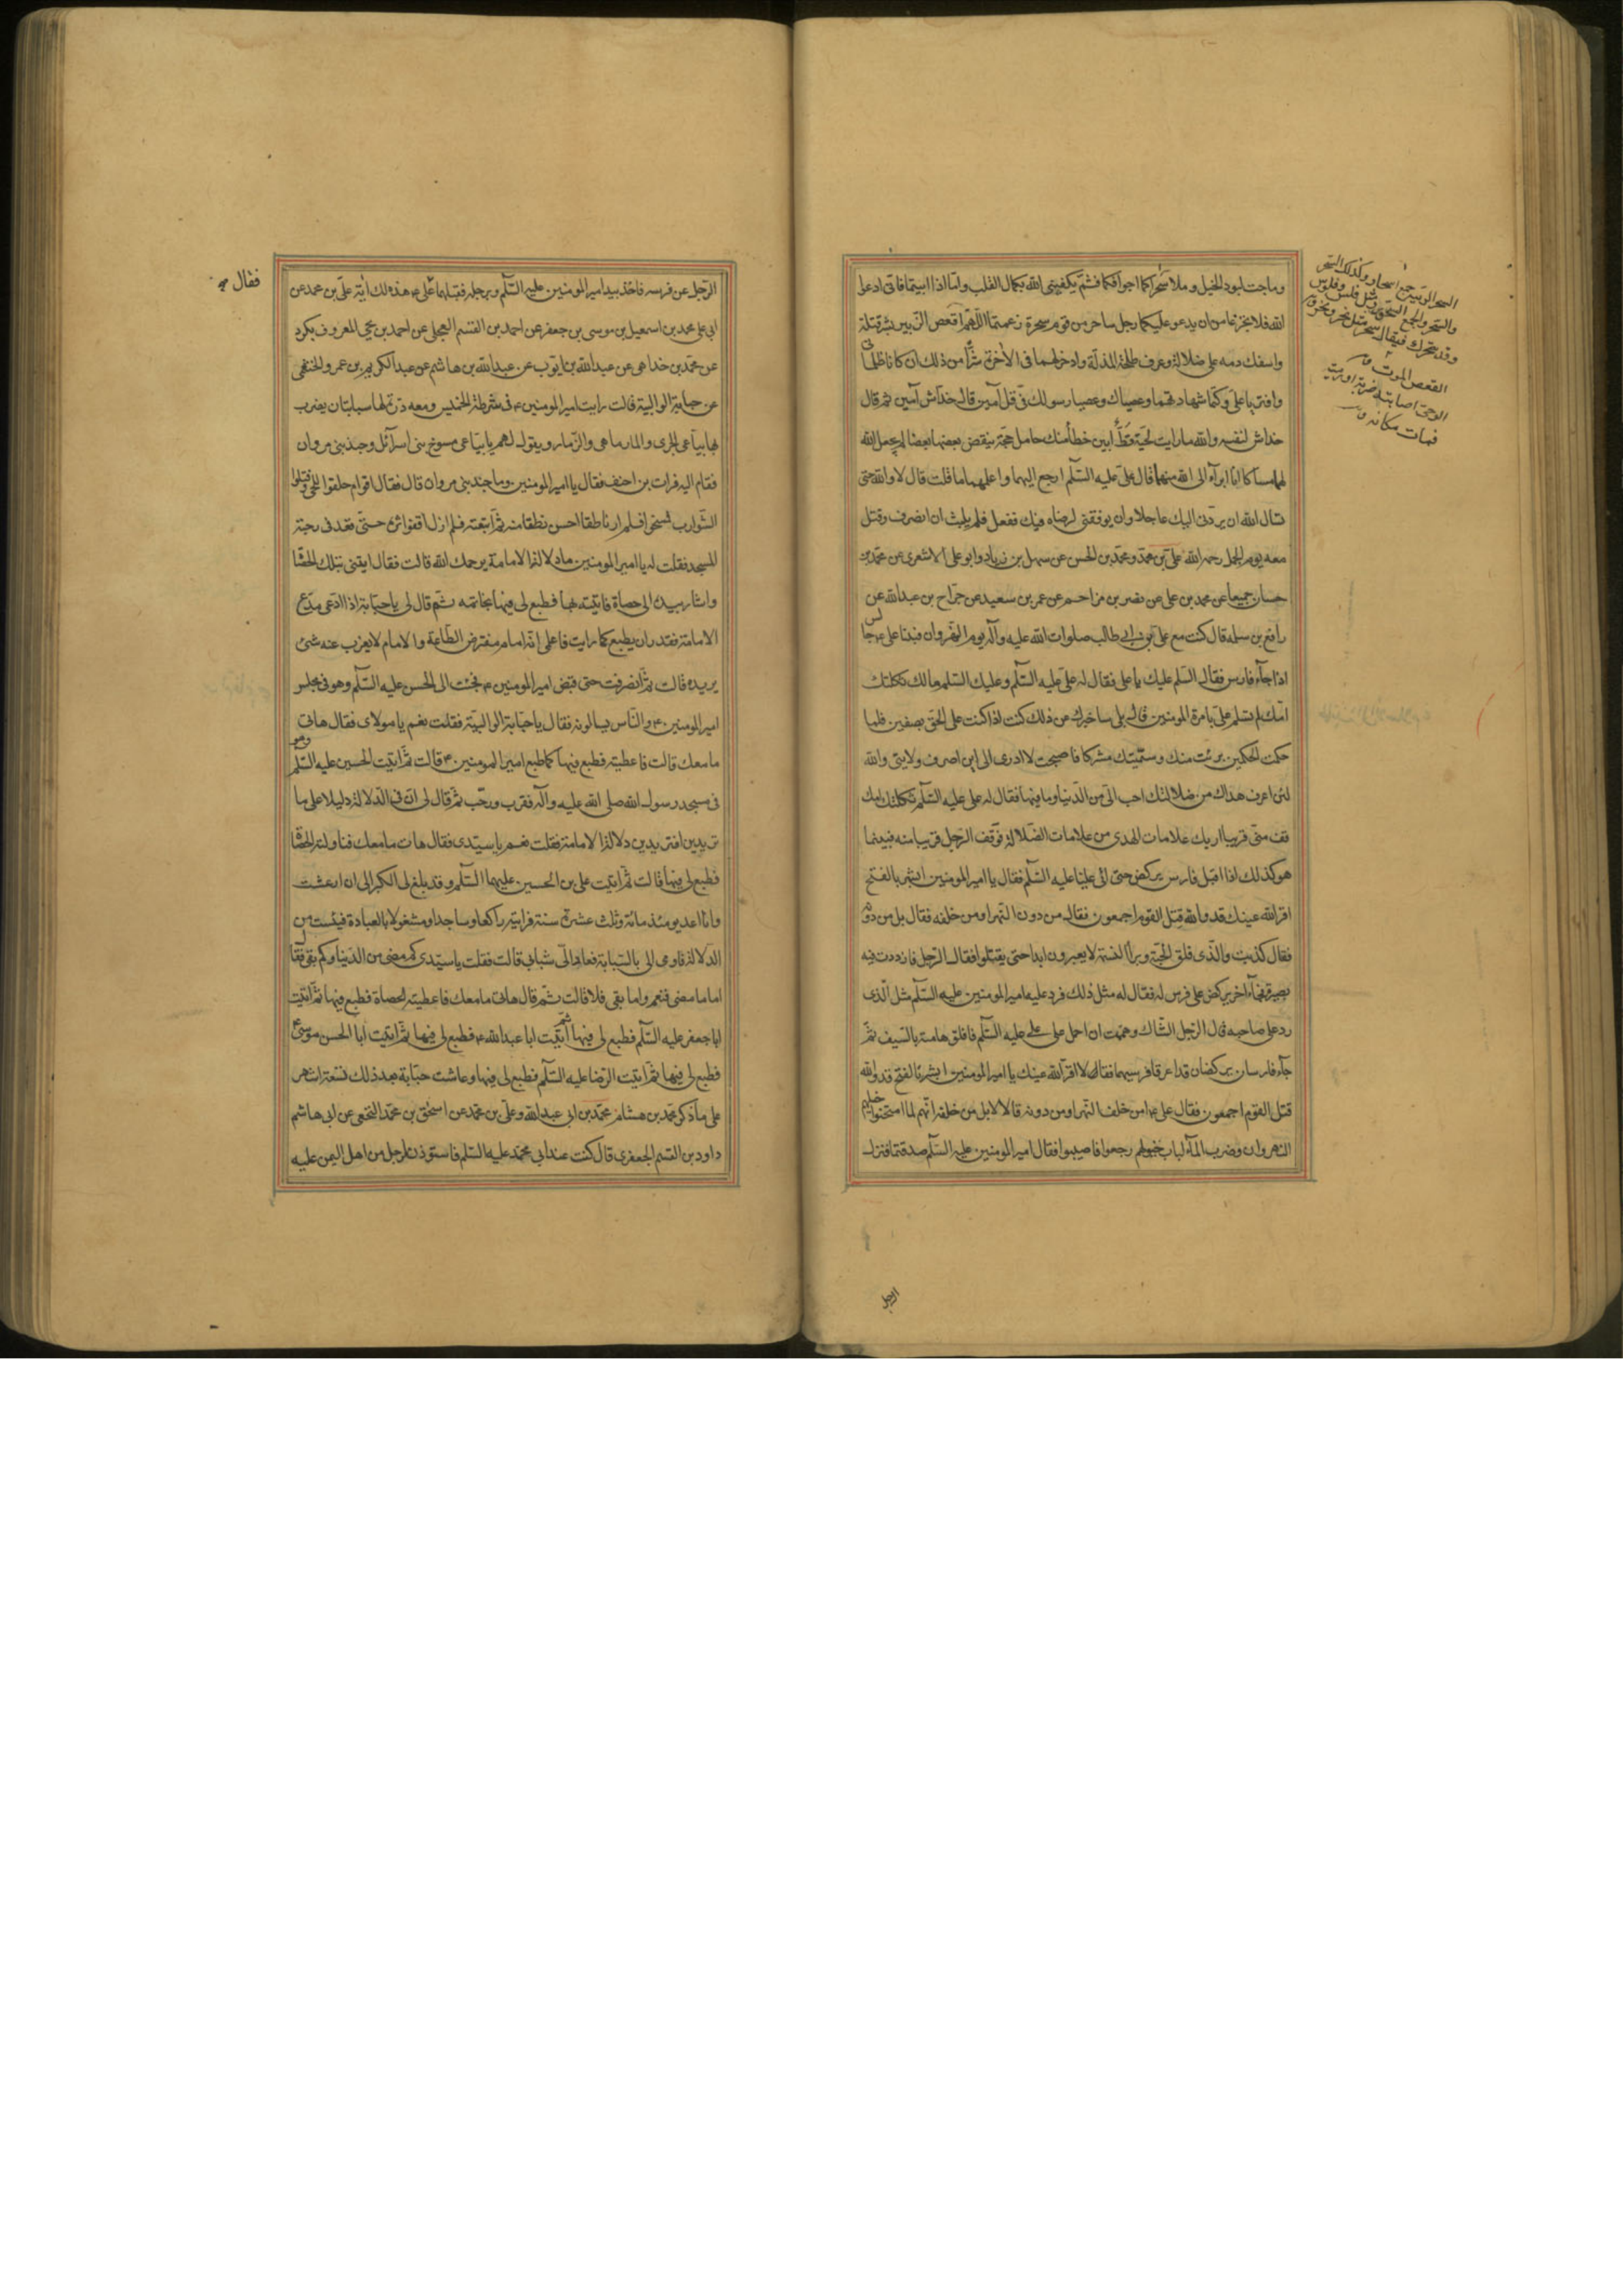 وماجت لبود الخيل وملا سحراكما اجوافكما فثم يكفيني الله بكمال القلب واما اذا ابيتما فاني ادعوا
الله فلا تجزعا من ان يدعو عليكما رجل ساحر من قوم سحرة زعمتما اللهم اقعص الزبير بشر قتلة
واسفك دمه على ضلالة وعرف طلحة المذلة وادخر لهما في الاخرة شرا من ذلك ان كانا ظلما
ني وافتريا علي وكتما شهادتهما وعصياك وعصيا رسولك في قل آمين قال خداش آمين ثم قال
خداش لنفسه والله ما رايت لحية قط ابين خطأ منك حامل حجة ينقض بعضها بعضا لم يجعل الله
لها مساكا انا ابرأ الى الله منهما قال علي عليه السلم ارجع اليهما واعلمهما ما قلت قال لا والله حتى
تسال الله ان يردني اليك عاجلا وان يوفقني لرضاه فيك ففعل فلم يلبث ان انصرف وقتل
معه يوم الجمل رحمه الله علي بن محمد ومحمد بن الحسن عن سهل بن زياد وابو علي الاشعري عن محمد بن
حسان جميعا عن محمد بن علي عن نصر بن مزاحم عن عمر بن سعيد عن جراح بن عبد الله عن
رافع بن سلمه قال كنت مع علي بن ابي طالب صلوات الله عليه وآله يوم النهروان فبينا علي ع جا لس
اذا جاء فارس فقال السلم عليك يا علي فقال له علي عليه السلم وعليك السلم مالك ثكلتك
امك لم تسلم علي بامرة المومنين قال بلى ساخبرك عن ذلك كنت اذ كنت على الحق بصفين فلما
حكمت الحكمين برئت منك وسميتك مشركا فاصبحت لا ادري الى اين اصرف ولايتي والله
لئن اعرف هداك من ضلالتك احب الي من الدنيا وما فيها فقال له علي عليه السلم ثكلتك امك
قف مني قريبا اريك علامات الهدى من علامات الضلالة فوقف الرجل قريبا منه فبينما
هو كذلك اذا اقبل فارس يركض حتى اتى عليا عليه السلم فقال يا امير المومنين ابشر بالفتح
اقر الله عينك قد والله قتل القوم اجمعون فقال له من دون النهر او من خلفه فقال بل من دونه
فقال كذبت والذي فلق الحبة وبرأ النسمة لا يعبرون ابدا حتى يقتلوا فقال الرجل فازددت فيه
بصيرة فجاء آخر يركض على فرس له فقال له مثل ذلك فرد عليه امير المومنين عليه السلم مثل الذي
رد على صاحبه قال الرجل الشاك وهممت ان احمل على علي عليه السلم فافلق هامته بالسيف ثم
جاء فارسان يركضان قد اعرقا فرسيهما فقالا اقر الله عينك يا امير المومنين ابشر بالفتح قد والله
قتل القوم اجمعون فقال علي ع امن خلف النهر او من دونه قالا لا بل من خلفه انهم لما اقتحموا خيلهم
النهروان وضرب الماء لبات خيولهم رجعوا فاصيبوا فقال امير المومنين عليه السلم صدقتما فنزل
الرجل
القعص الموت
فمات مكانه ق
الرجل عن فرسه فاخذ بيد امير المومنين عليه السلم وبرجله فقبلهما فقال علي ع هذه لك آية علي بن محمد عن
ابي علي محمد بن اسمعيل بن موسى بن جعفر عن احمد بن القسم العجلي عن احمد بن يحيى المعروف بكرد
عن محمد بن خداهي عن عبد الله بن ايوب عن عبد الله بن هاشم عن عبد الكريم بن عمرو الخثعمي
عن حبابة الوالبية قالت رايت امير المومنين ع في شرطة الخميس ومعه درة لها سبابتان يضرب
بها بياعي الجري والمارماهي والزمار ويقول لهم يا بياعي مسوخ بني اسرآئل وجند بني مروان
فقام اليه فرات بن احنف فقال يا امير المومنين وما جند بني مروان قال فقال اقوام حلقوا اللحى وفتلوا
الشوارب فمسخوا فلم ار ناطقا احسن نطقا منه ثم اتبعته فلم ازل اقفوا اثره حتى قعد في رحبة
المسجد فقلت له يا امير المومنين ما دلالة الامامة يرحمك الله قالت فقال ايتني بتلك الحصا
واشار بيده الى حصاة فاتيته بها فطبع لي فيها بخاتمه ثم قال لي يا حبابة اذا ادعى مدع
الامامة فقدر ان يطبع كما رايت فاعلمي انه امام مفترض الطاعة والامام لا يعزب عنه شئ
يريده قالت ثم انصرفت حتى قبض امير المومنين ع فجئت الى الحسن عليه السلم وهو في مجلس
امير المومنين ع والناس يسالونه فقال يا حبابة الوالبية فقلت نعم يا مولاي فقال هاتي
ما معك قالت فاعطيته فطبع فيها كما طبع امير المومنين ع قالت ثم اتيت الحسين عليه السلم وهو
في مسجد رسول الله صلى الله عليه وآله فقرب ورحب ثم قال لي ان في الدلالة دليلا على ما
تريدين افتريدين دلالة الامامة فقلت نعم يا سيدي فقال هات ما معك فناولته الحصا
فطبع لي فيها قالت ثم اتيت علي بن الحسين عليهما السلم وقد بلغ لي الكبر الى ان ارعشت
وانا اعد يومئذ مائة وثلث عشرة سنة فرايته راكعا وساجدا ومشغولا بالعبادة فيئست من
الدلالة فاومى الي بالسبابة فعاد الي شبابي قالت فقلت يا سيدي كم مضى من الدنيا وكم بقي فقال
اما ما مضى فنعم واما ما بقي فلا قالت ثم قال هاتي ما معك فاعطيته الحصاة فطبع فيها ثم اتيت
ابا جعفر عليه السلم فطبع لي فيها ثم اتيت ابا عبد الله ع فطبع لي فيها ثم اتيت ابا الحسن موسى ع
فطبع لي فيها ثم اتيت الرضا عليه السلم فطبع لي فيها وعاشت حبابة بعد ذلك تسعة اشهر
على ما ذكر محمد بن هشام محمد بن ابي عبد الله وعلي بن محمد عن اسحق بن محمد النخعي عن ابي هاشم
داود بن القسم الجعفري قال كنت عند ابي محمد عليه السلم فاستوذن لرجل من اهل اليمن عليه
فقال